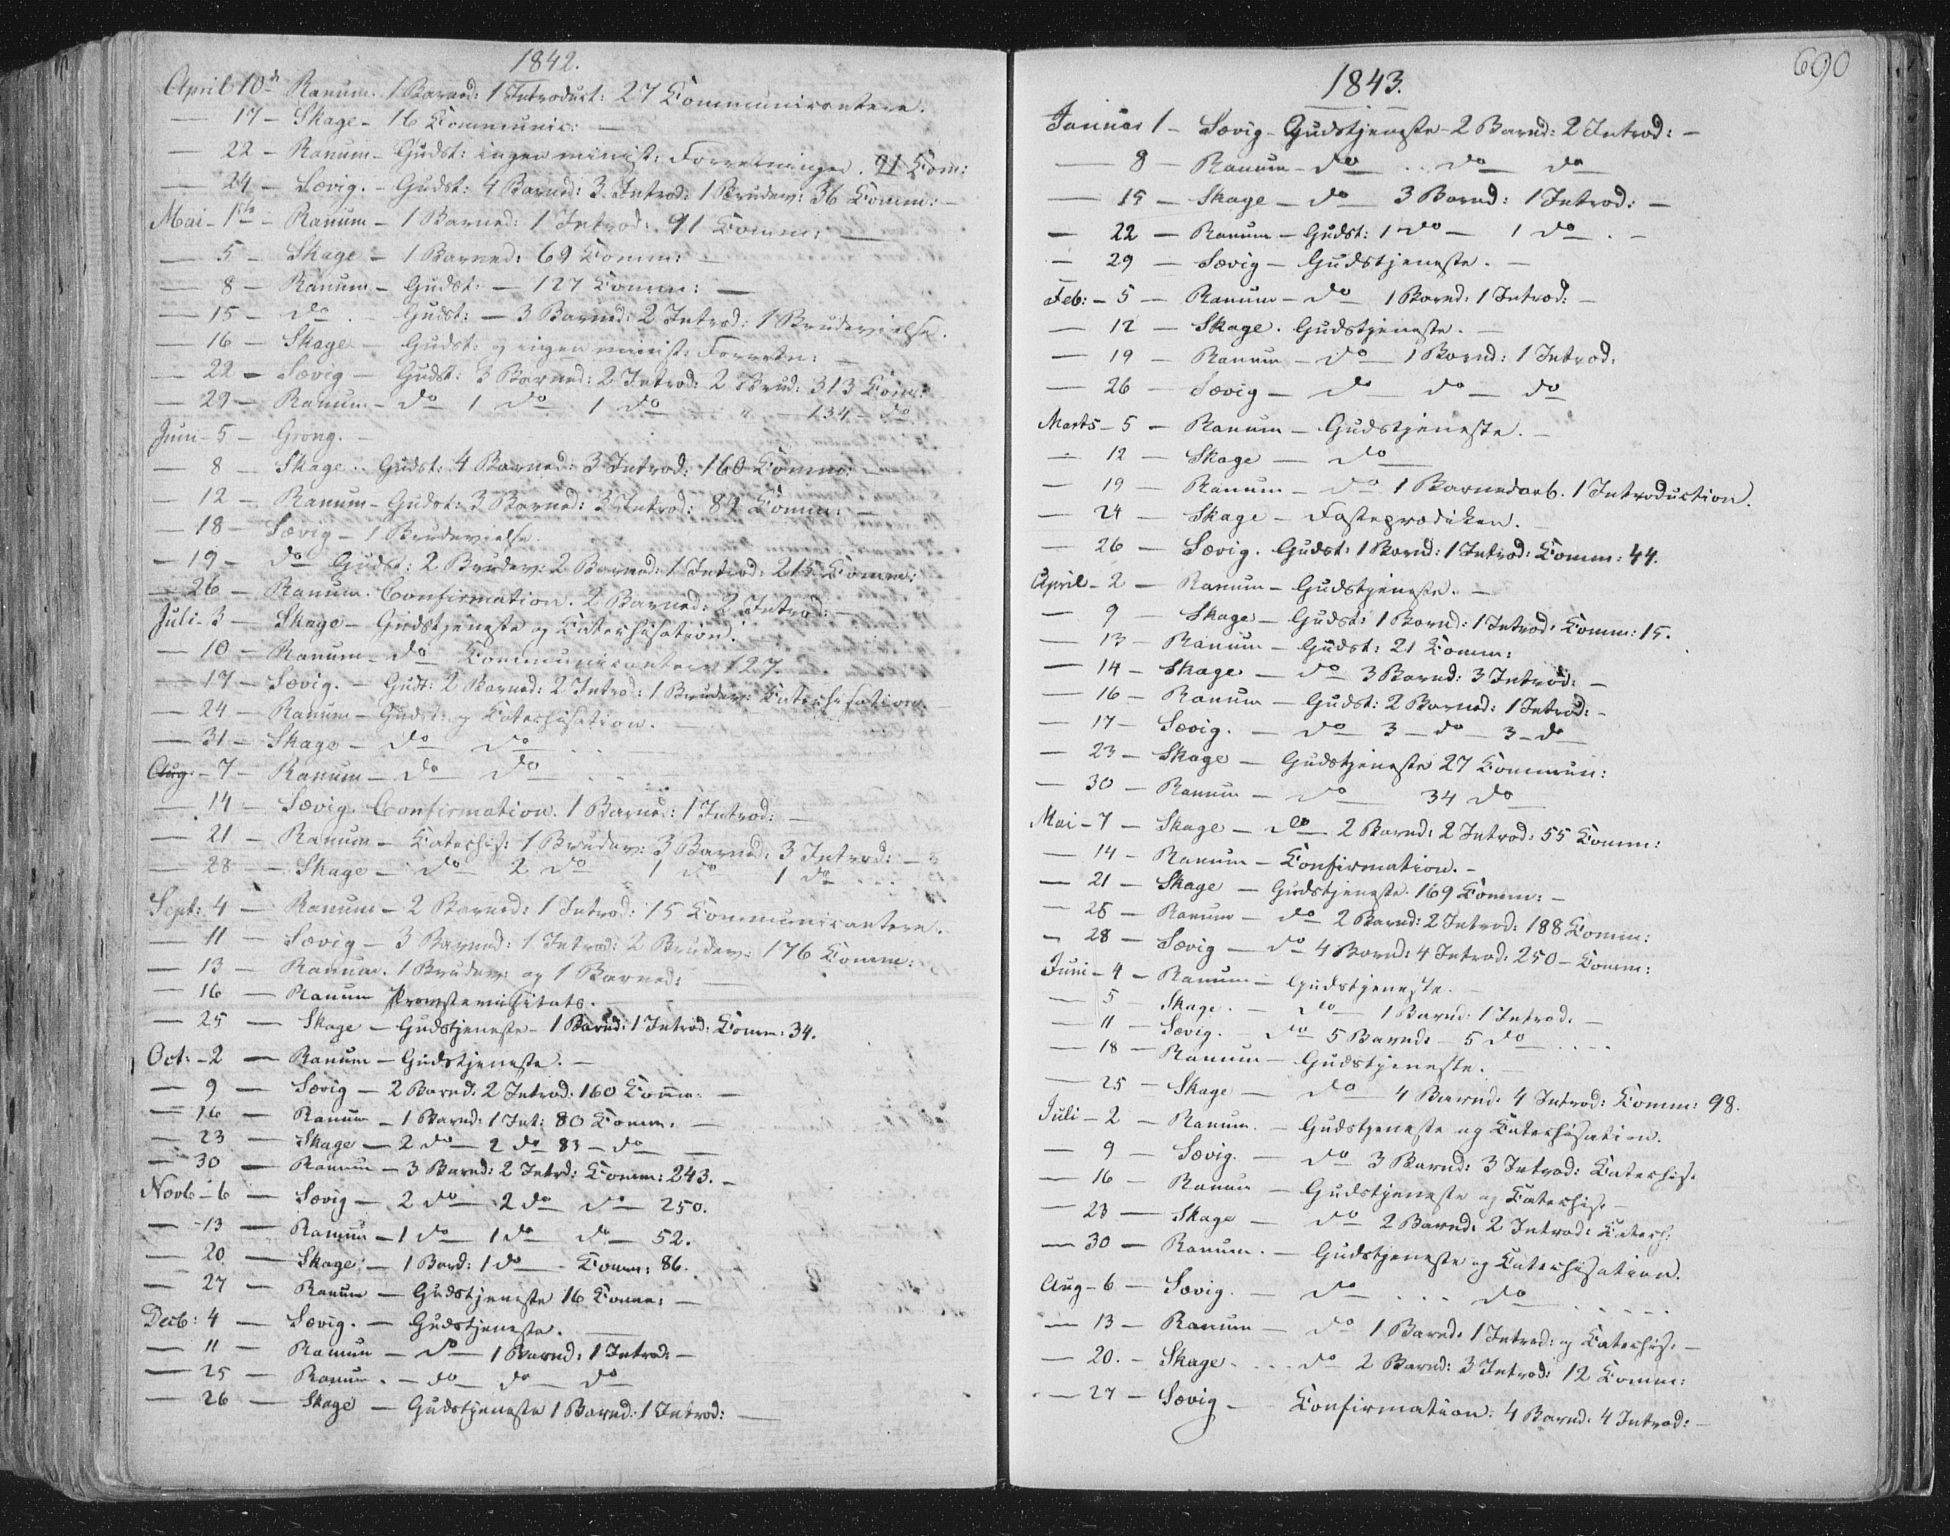 1842.
April 10de Ranum. 1 Barned: 1 Introduct: 27 Communicantere.
— 17 – Skage – 16 Communic: —
— 22 – Ranum – Gudst: ingen minist: Forretninger. 91 Com:
— 24 – Sævig. – Gudst: 4 Barned: 3 Introd: 1 Brudev: 36 Comm: –
Mai – 1ste – Ranum – 1 Barned: 1 Introd: 91 Comm: —
— 5 – Skage – 1 Barned: 69 Comm: —
— 8 – Ranum – Gudst: — 127 Comm: —
— 15 – do . – Gudst: — 3 Barned: 2 Introd: 1 Brudevielse.
— 16 – Skage – Gudst: og ingen minist: Forretn: —
— 22 – Sævig – Gudst: 3 Barned: 2 Introd: 2 Brud: 313 Com:
— 29 – Ranum – do 1 do 1 do " – 134 – do
Juni – 5 – Grong. –
— 8 – Skage. Gudst: 4 Barned: 3 Introd: 160 Comm: –
— 12 – Ranum – Gudst: 3 Barned: 3 Introd: 89 Comm: –
— 18 – Sævig – 1 Brudevielse.
— 19 – do Gudst: 2 Brudev: 2 Barned: 1 Introd: 215 Comm:
— 26 – Ranum. Confirmation. 2 Barned: 2 Introd: –
Juli – 3 – Skage – Gudstjeneste og Catechisation.
— 10 – Ranum – do Communicantere 127.
— 17 – Sævig. – Gudt: 2 Barned: 2 Introd: 1 Brudev: Catechisation.
— 24 – Ranum – Gudst: og Catechisation. –
— 31 – Skage – do do
Aug. – 7 – Ranum – do do
— 14 – Sævig. Confirmation. 1 Barned: 1 Introd: –
— 21 – Ranum – Catechis: 1 Brudev: 3 Barned: 3 Introd: –
— 28 – Skage – do 2 do 1 do 1 do
Sept: 4 – Ranum – 2 Barned: 1 Introd: 15 Communicantere.
— 11 – Sævig – 3 Barned: 1 Introd: 2 Brudev: 176 Comm:
— 13 – Ranum. 1 Brudev: og 1 Barned: —
— 16 — Ranum Provstevisitats. –
— 25 — Skage – Gudstjeneste – 1 Barnd: 1 Introd: Comm: 34.
Oct: – 2 — Ranum – Gudstjeneste. –
— 9 — Sævig – 2 Barnd. 2 Introd. 160 Comm. –
— 16 — Ranum – 1 Barnd: 1 Int: 80 Comm. –
— 23 — Skage – 2 do – 2 do 83 – do –
— 30 — Ranum – 3 Barnd: 2 Intrd: Comm: 243. –
Novb – 6 — Sævig – 2 do – 2 do do – 250.
— 13 — Ranum – 1 do 1 do do – 52.
— 20 — Skage – 1 Bard: 1 do – Comm: 86.
— 27 — Ranum – Gudstjeneste 16 Comm: –
Decb: 4 — Sævig. – Gudstjeneste. —
— 11 — Ranum – do – 1 Barnd: 1 Introd: –
— 25 — Ranum. – do do do
— 26 — Skage – Gudstjeneste 1 Barnd: 1 Introd: —
690
1843.
Januar 1 – Sævig – Gudstjeneste – 2 Barnd: 2 Introd: –
— 8 – Ranum – do .. do do
— 15 – Skage – do 3 Barnd: 1 Introd: –
— 22 – Ranum – Gudst: 1 do – 1 do . –
— 29 – Sævig – Gudstjeneste. –
Feb: – 5 – Ranum – do 1 Barnd: 1 Introd: –
— 12 – Skage. Gudstjeneste. –
— 19 – Ranum – do 1 Barnd: 1 Introd.
— 26 – Sævig – do do – do
Marts – 5 – Ranum – Gudstjeneste. –
— 12 – Skage – do
— 19 – Ranum – do 1 Barnedaab. 1 Introduction.
— 24 – Skage – Fasteprædiken.
— 26 – Sævig. Gudst: 1 Barnd: 1 Introd: Comm: 44.
April – 2 – Ranum – Gudstjeneste. –
— 9 – Skage – Gudst: 1 Barnd: 1 Introd: Comm: 15.
— 13 – Ranum – Gudst: 21 Comm:
— 14 – Skage – do 3 Barnd: 3 Introd: –
— 16 – Ranum – Gudst: 2 Barned: 1 Introd: –
— 17 – Sævig. – do 3 – do – 3 – do
— 23 – Skage – Gudstjeneste 27 Commun:
— 30 – Ranum – do 34 do
Mai – 7 – Skage – do 2 Barnd: 2 Introd: 55 Comm:
— 14 – Ranum – Confirmation. –
— 21 – Skage – Gudstjeneste 169 Comm: –
— 25 – Ranum – do 2 Barnd: 2 Introd: 188 Comm:
— 28 – Sævig – do 4 Barnd: 4 Introd: 250 – Comm:
Juni – 4 – Ranum – Gudstjeneste. –
— 5 Skage. – do 1 Barnd: 1 Introd. –
— 11 – Sævig. – do 5 Barnd: – 5 do
— 18 – Ranum – Gudstjeneste. –
— 25 – Skage – do 4 Barnd: 4 Introd: Comm: 98.
Juli – 2 – Ranum. – Gudstjeneste og Catechisation.
— 9 – Sævig. – do 3 Barnd: 3 Introd: Catechis.
— 16 – Ranum – Gudstjeneste og Catechis. –
— 23 – Skage – do 2 Barnd: 2 Introd: Catech:
— 30 – Ranum. – Gudstjeneste og Catechisation.
Aug – 6 – Sævig. – do . . . do . . . . .
— 13 – Ranum – do 1 Barnd. 1 Introd: og Catechis. –
— 20. – Skage – . . . do 2 Barnd: 3 Introd: 12 Comm:
— 27 – Sævig – Confirmation. 4 Barnd. 4 Introd: –